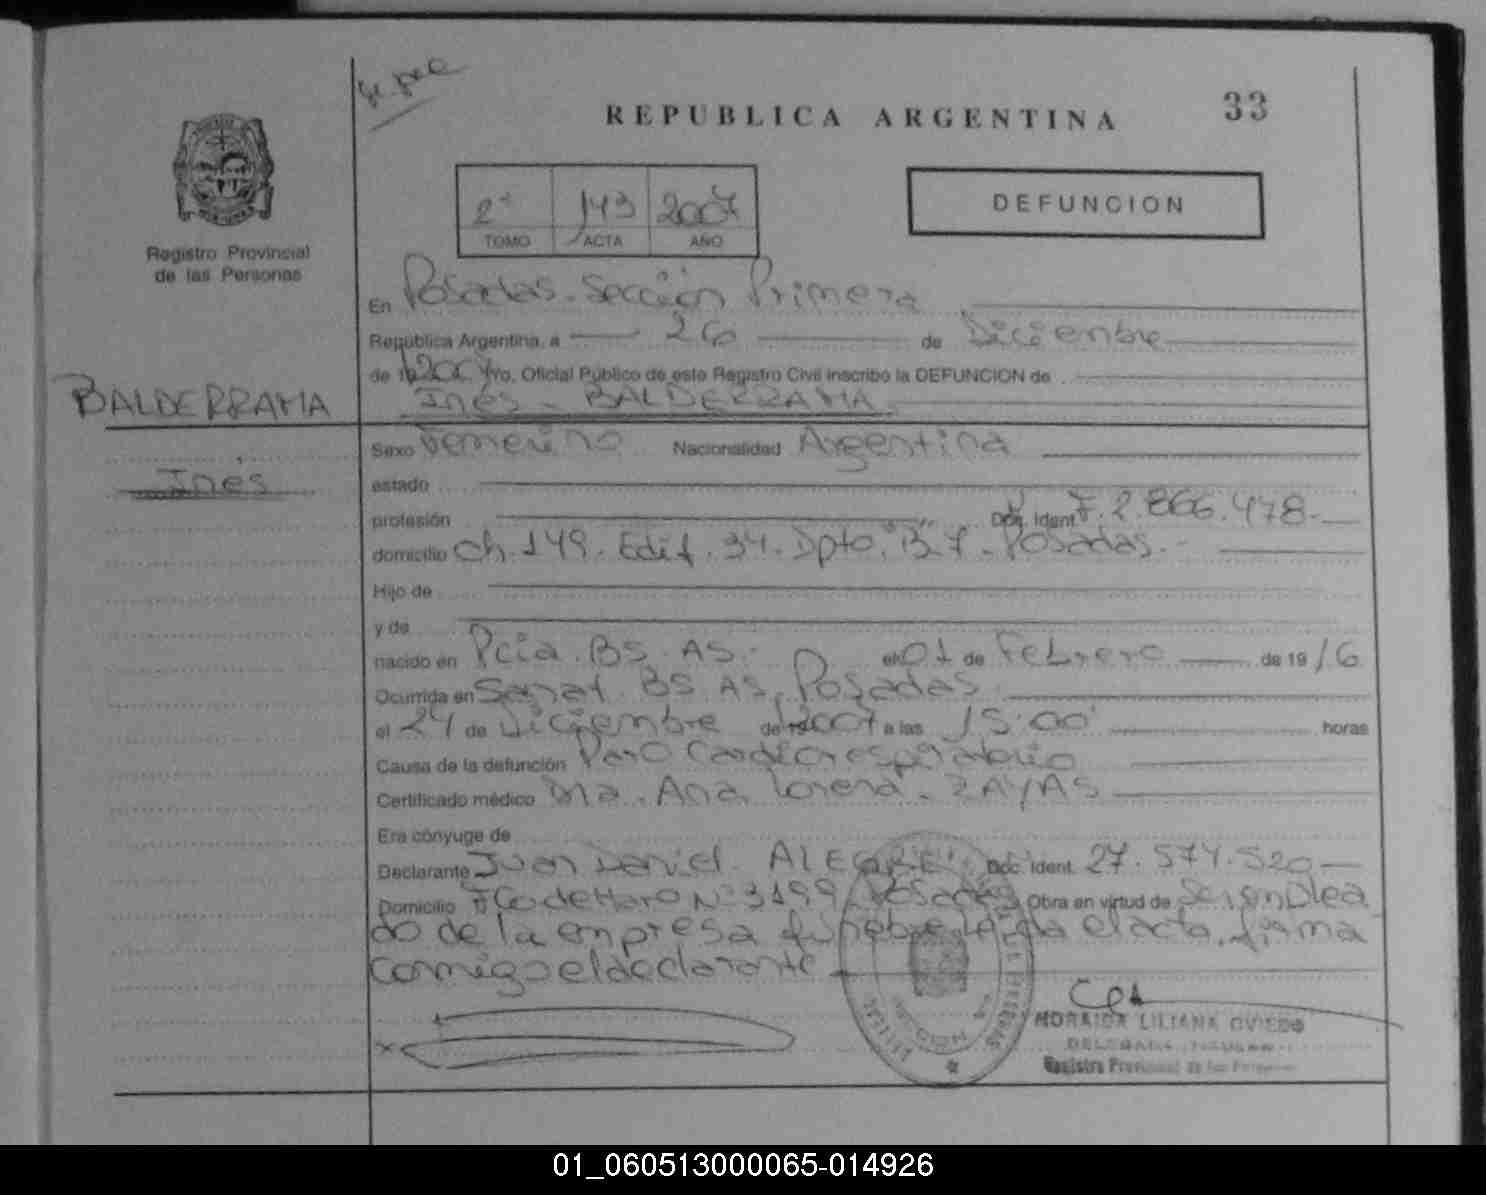 REPUBLICA ARGENTINA
33
Registro Provincial
de las Personas
2º 143 2007
TOMO ACTA AÑO
DEFUNCION
En Posadas. Sección Primera
República Argentina, a 26 de Diciembre
de 19 2007 yo, Oficial Público de este Registro Civil inscribo la DEFUNCION de
BALDERRAMA
Inés
Inés - BALDERRAMA
Sexo Femenino Nacionalidad Argentina
estado
profesión Doc. Ident. F. 2.866.478.-
domicilio Ch. 149. Edif. 34. Dpto. "B" 7. Posadas.-
Hijo de
y de
nacido en Pcia. BS. AS.- el 01 de Febrero de 19 16
Ocurrida en Sanat. BS. AS. Posadas
el 24 de Diciembre de 2007 a las 15:00 horas
Causa de la defunción Paro Cardiorespiratorio
Certificado médico Dra. Ana Lorena - ZAYAS
Era cónyuge de
Declarante Juan Daniel. ALEGRE Doc. Ident. 27.574.520-
Domicilio Fco de Haro Nº 3199 Posadas Obra en virtud de Ser emplea
do de la empresa fúnebre. Leída el acta, firma
conmigo el declarante
MORAIDA LILIANA OVIEDO
DELEGADA TITULAR
Registro Provincial de las Personas
01_060513000065-014926